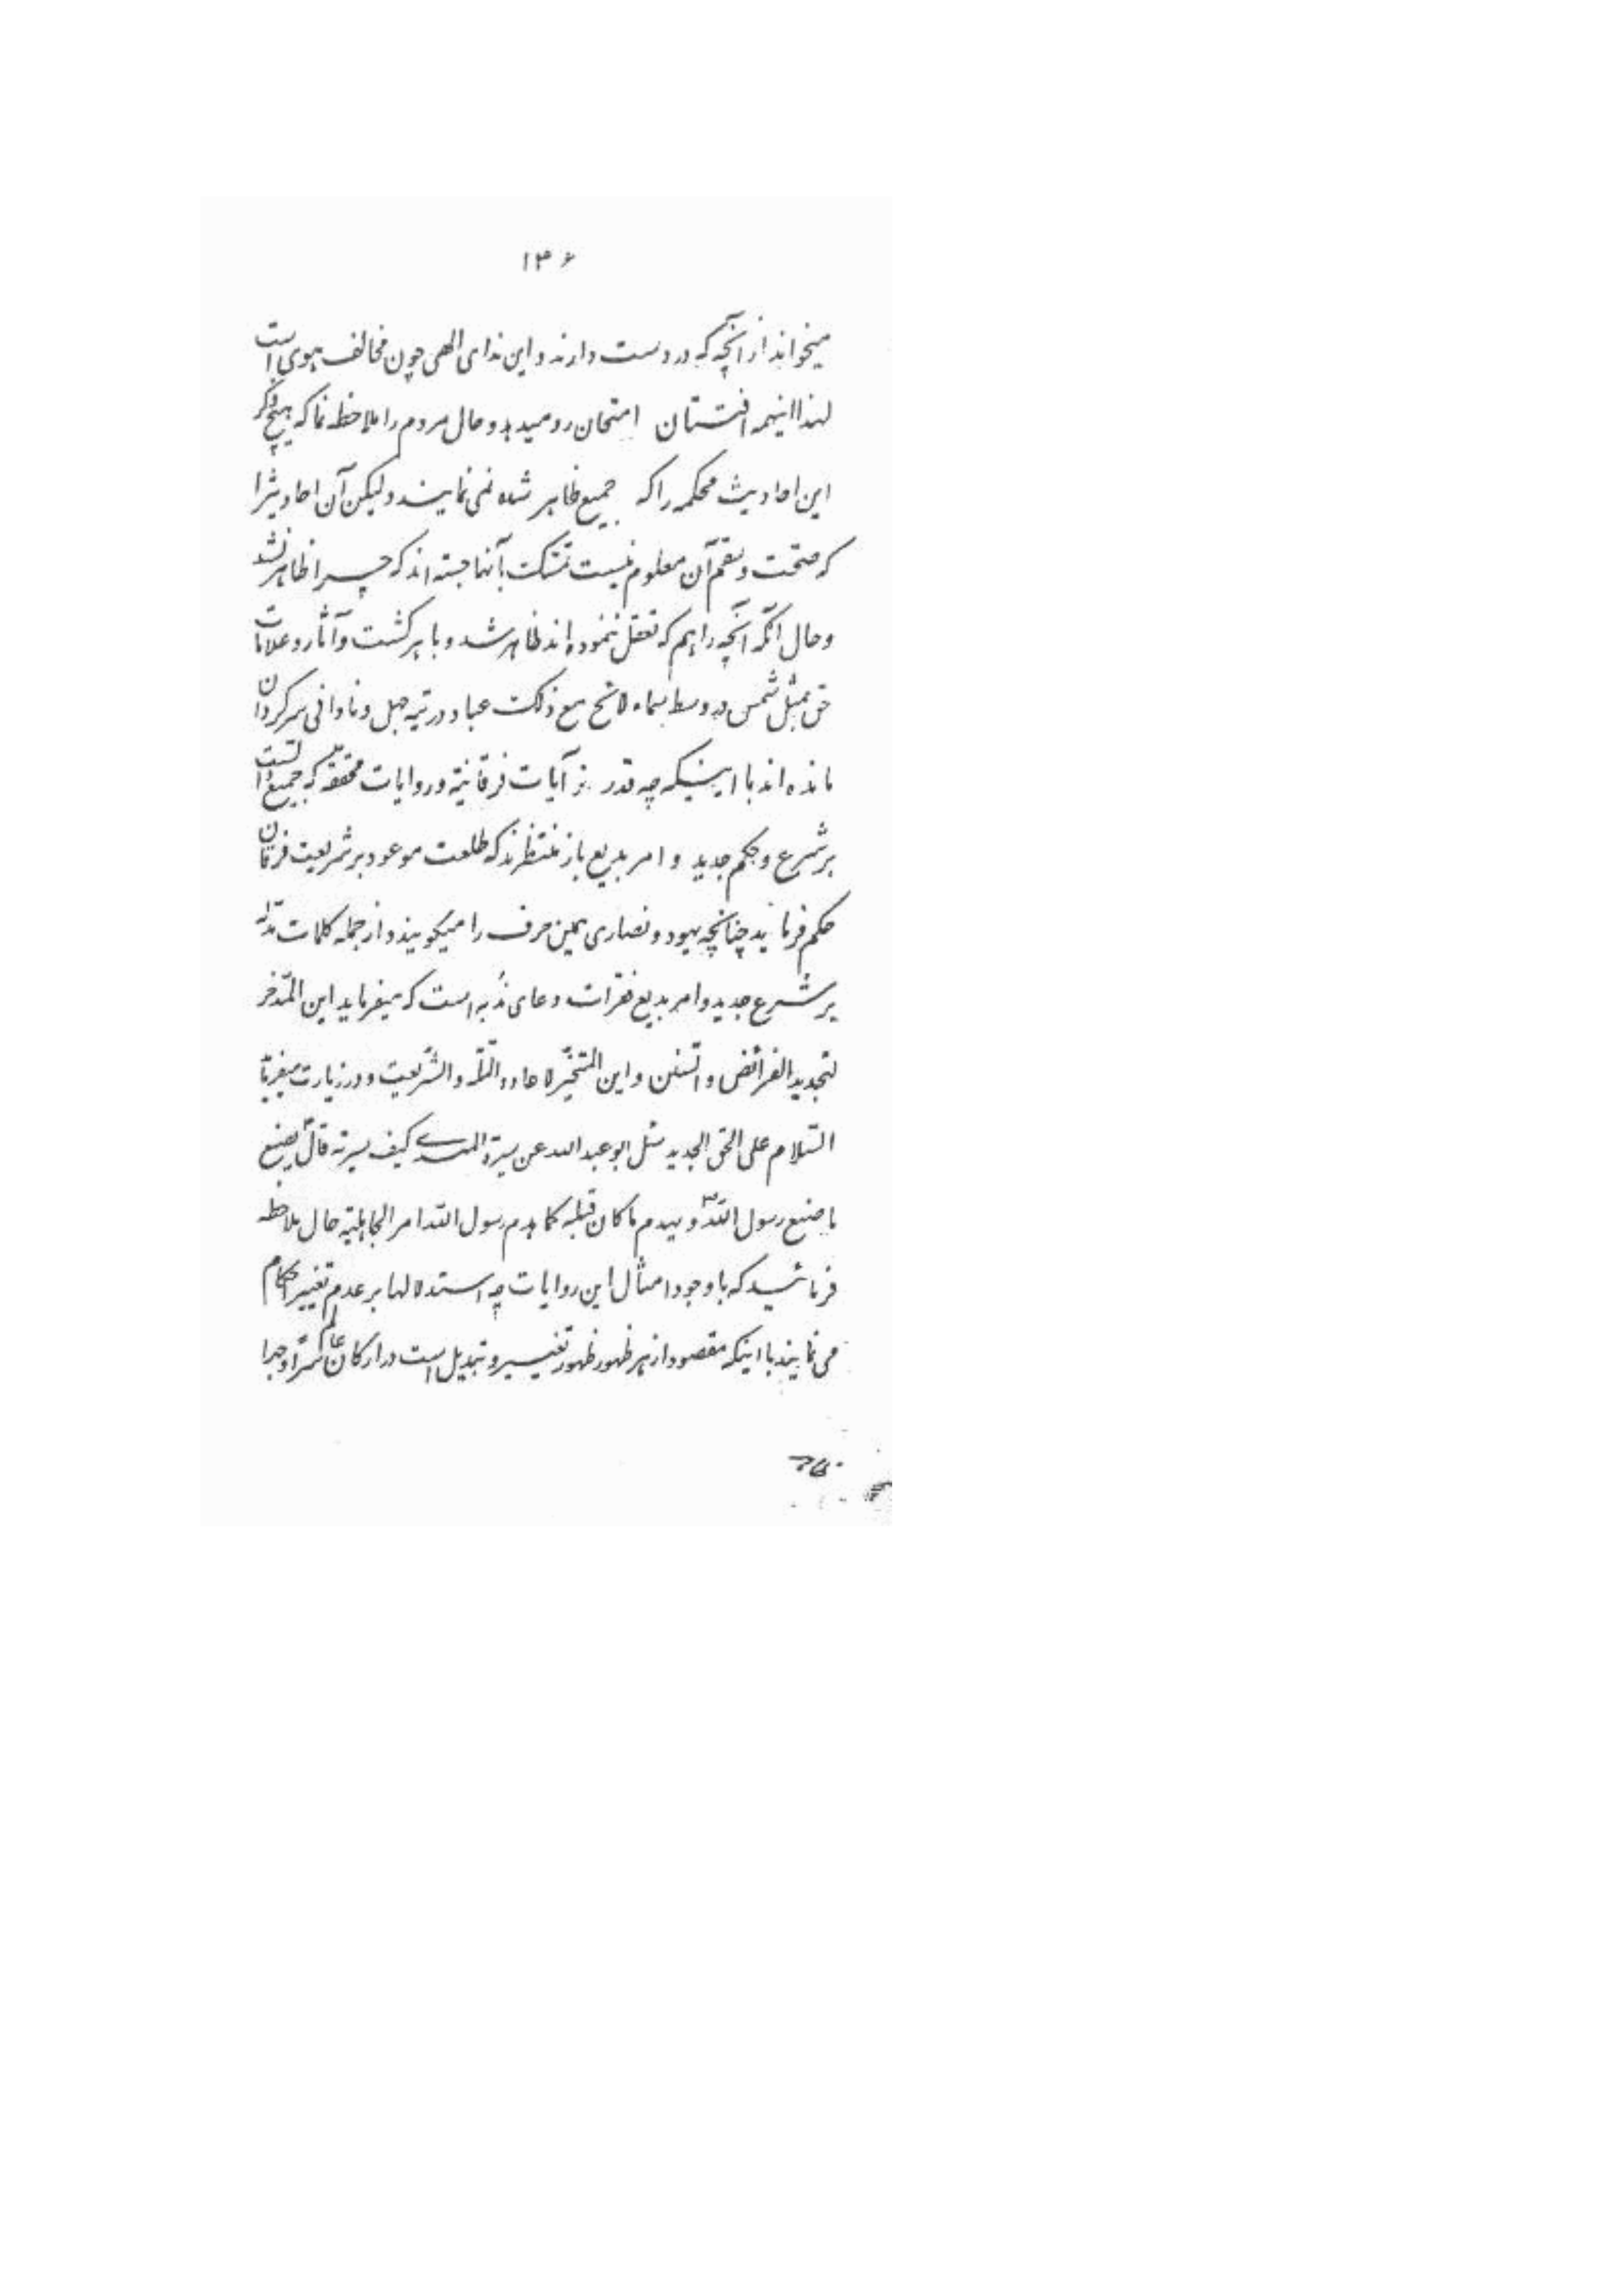 ۱۳۶
میخواند از آنچه که در دست دارند و این ندای الهی چون مخالف هوی است
لهذا اینهمه افتتان امتحان رو میدهد و حال مردم را ملاحظه نما که هیچ ذکر
این احادیث محکمه را که جمیع ظاهر شده نمی نمایند ولیکن آن احادیث را
که صحّت و سقم آن معلوم نیست تمسّک بآنها جسته اند که چرا ظاهر نشد
و حال آنکه آنچه را هم که تعقل ننموده اند ظاهر شد و باهر گشت و آثار و علامات
حق بمثل شمس در وسط سماء لائح مع ذلک عباد در تیه جهل و نادانی سرگردان
مانده اند با اینکه چه قدر از آیات فرقانیّه و روایات محققه که جمیع دالّست
بر شرع و حکم جدید و امر بدیع باز منتظرند که طلعت موعود بر شریعت فرقان
حکم فرماید چنانچه یهود و نصاری همین حرف را میگویند و از جمله کلمات مدلّه
بر شرع جدید و امر بدیع فقرات دعای ندُبه است که میفرماید این المدّخر
لتجدید الفرائض و السّنن و این المتخیّر لاعادة الملّه و الشّریعت و در زیارت میفرماید
السّلام علی الحقّ الجدید سئل ابو عبدالله عن سیرة المهدی کیف سیرته قال یصنع
ما صنع رسول اللّه و یهدم ما کان قبله کما هدم رسول اللّه امر الجاهلیّه حال ملاحظه
فرمائید که با وجود امثال این روایات چه استدلالها بر عدم تغییر احکام
می نمایند با اینکه مقصود از هر ظهور ظهور تغییر و تبدیل است در ارکان عالم سرّاً و جهراً